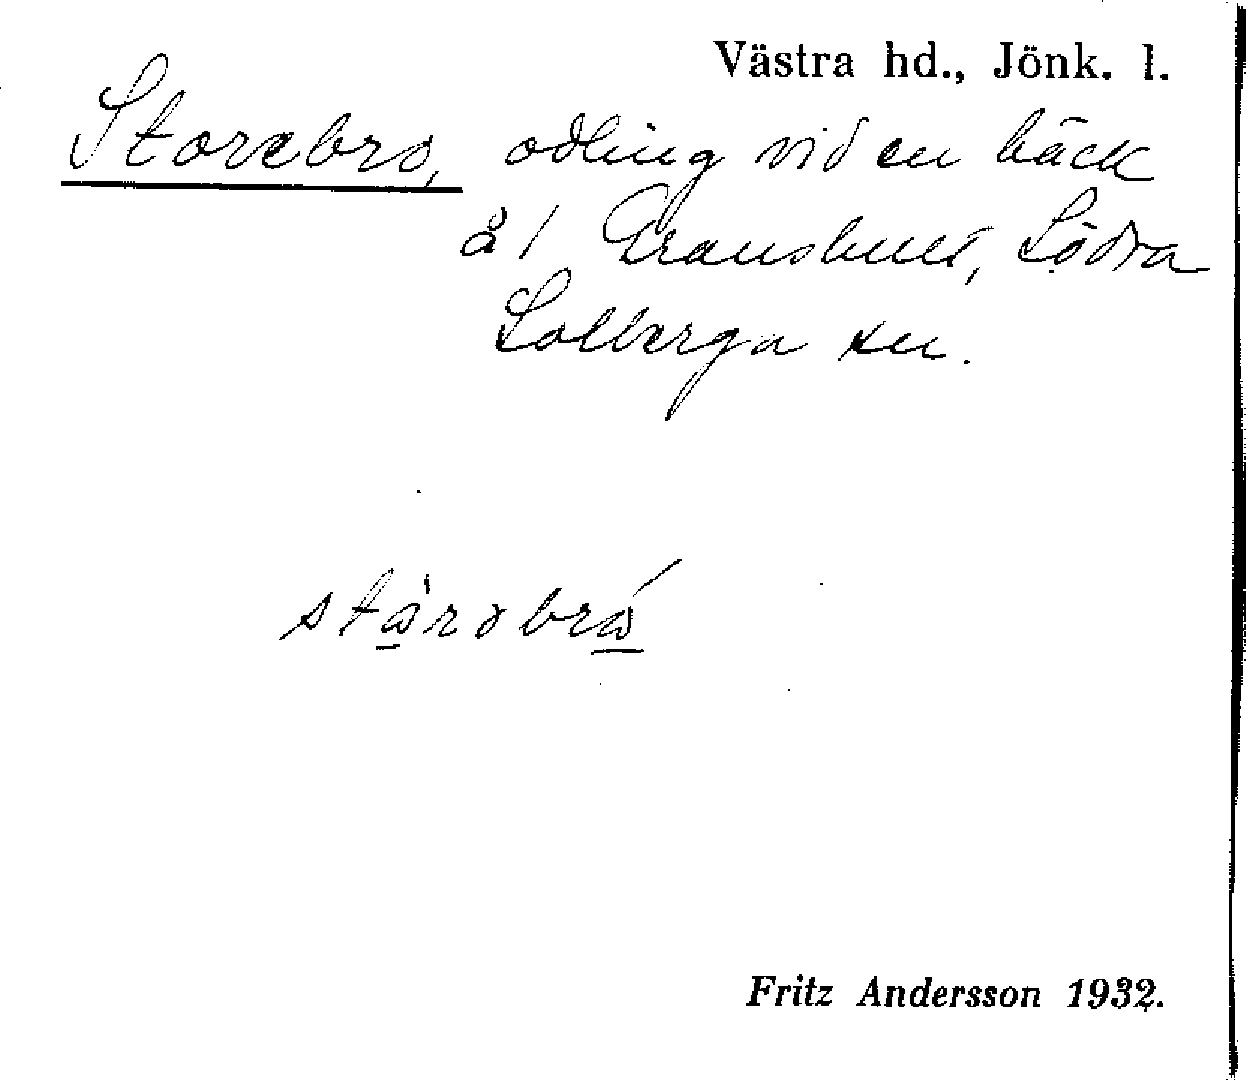 Västra hd., Jönk. l.
Storebro, odling vid en bäck
å 1 Transhult, Södra
Solberga sn.
stårəbrå
Fritz Andersson 1932.